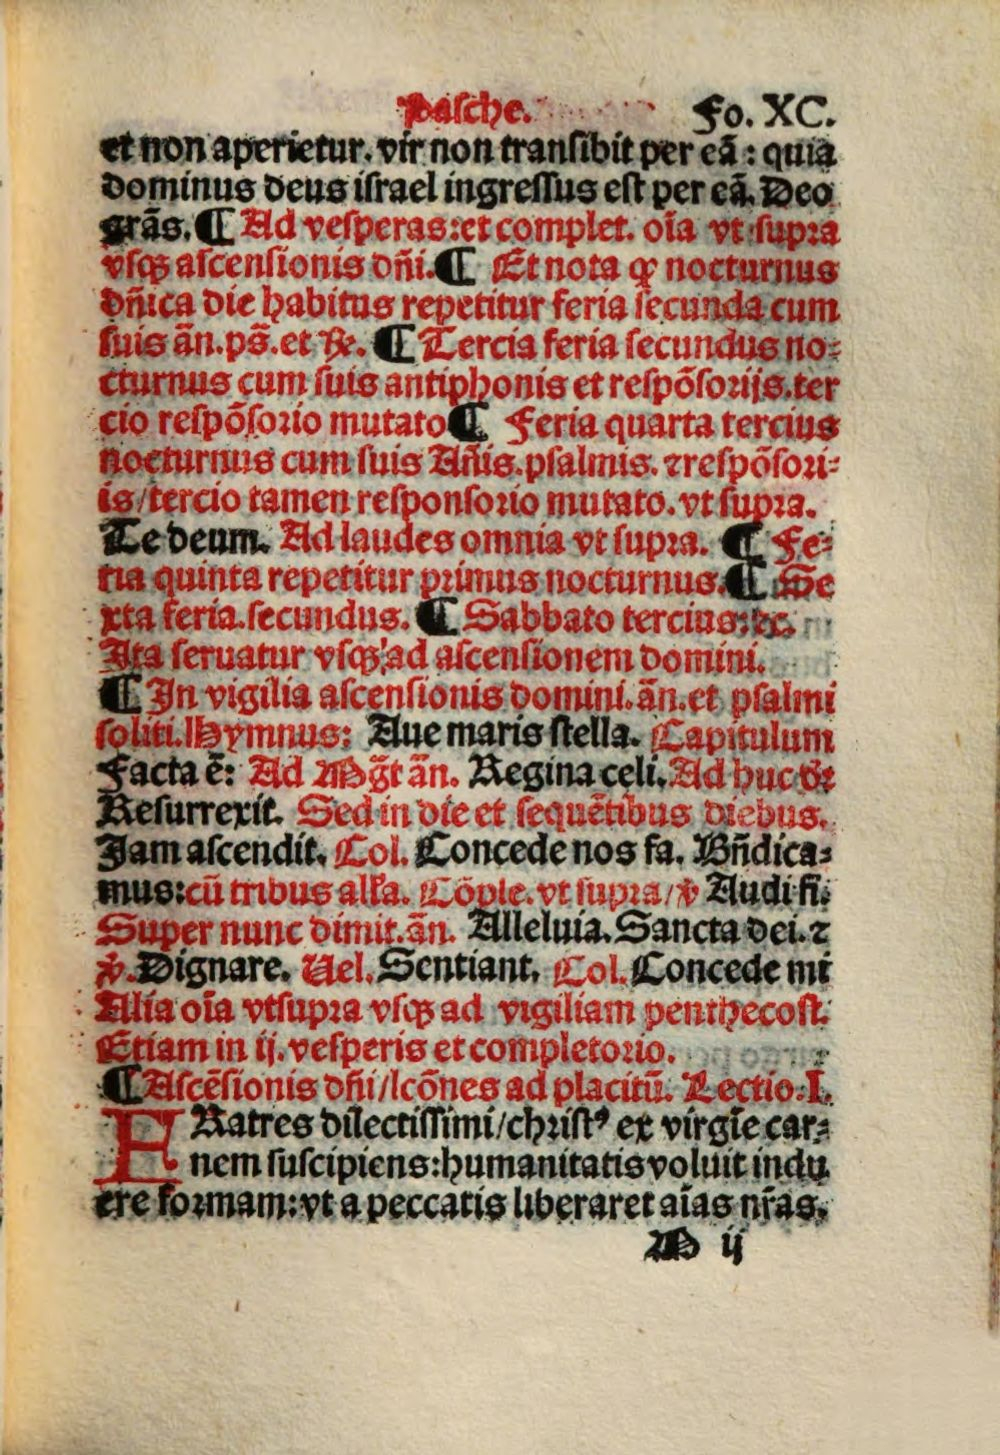 Pasche. Fo. XC.
et non aperietur. vir non transibit per eã : quia
dominus deus israel ingressus est per eã. Deo
grãs. ¶ Ad vesperas: et complet. oĩa vt supra
vsqꝫ ascensionis dñi. ¶ Et nota ꝙ nocturnus
dñica die habitus repetitur feria secunda cum
suis ãn. ps̃. et ℞. ¶ Tercia feria secundus no⸗
cturnus cum suis antiphonis et respõsorijs. ter
cio respõsorio mutato ¶ Feria quarta tercius
nocturnus cum suis Añis. psalmis. ⁊ respõsori⸗
is/tercio tamen responsorio mutato. vt supra.
Te deum. Ad laudes omnia vt supra. ¶ Fe⸗
ria quinta repetitur primus nocturnus. ¶ Se
xta feria. secundus. ¶ Sabbato tercius: ⁊c.
Ita seruatur vsqꝫ ad ascensionem domini.
¶ In vigilia ascensionis domini. ãn. et psalmi
soliti. Hymnus: Aue maris stella. Capitulum
Facta ẽ: Ad Mg̃t ãn. Regina celi. Ad huc
Resurrexit. Sed in die et sequẽtibus diebus.
Jam ascendit. Col. Concede nos fa. Bñdica⸗
mus: cũ tribus alla. Cõple. vt supra/ ℣ Audi fi.
Super nunc dimit. ãn. Alleluia. Sancta dei. ⁊
℣. Dignare. Uel. Sentiant. Col. Concede mi
Alia oĩa vt supra vsqꝫ ad vigiliam penthecost.
Etiam in ij. vesperis et completorio.
¶ Ascẽsionis dñi/lcõnes ad placitũ. Lectio. I.
FRatres dilectissimi/christꝰ ex virgĩe car⸗
nem suscipiens: humanitatis voluit indu
ere formam: vt a peccatis liberaret aĩas nr̃as.
M ij